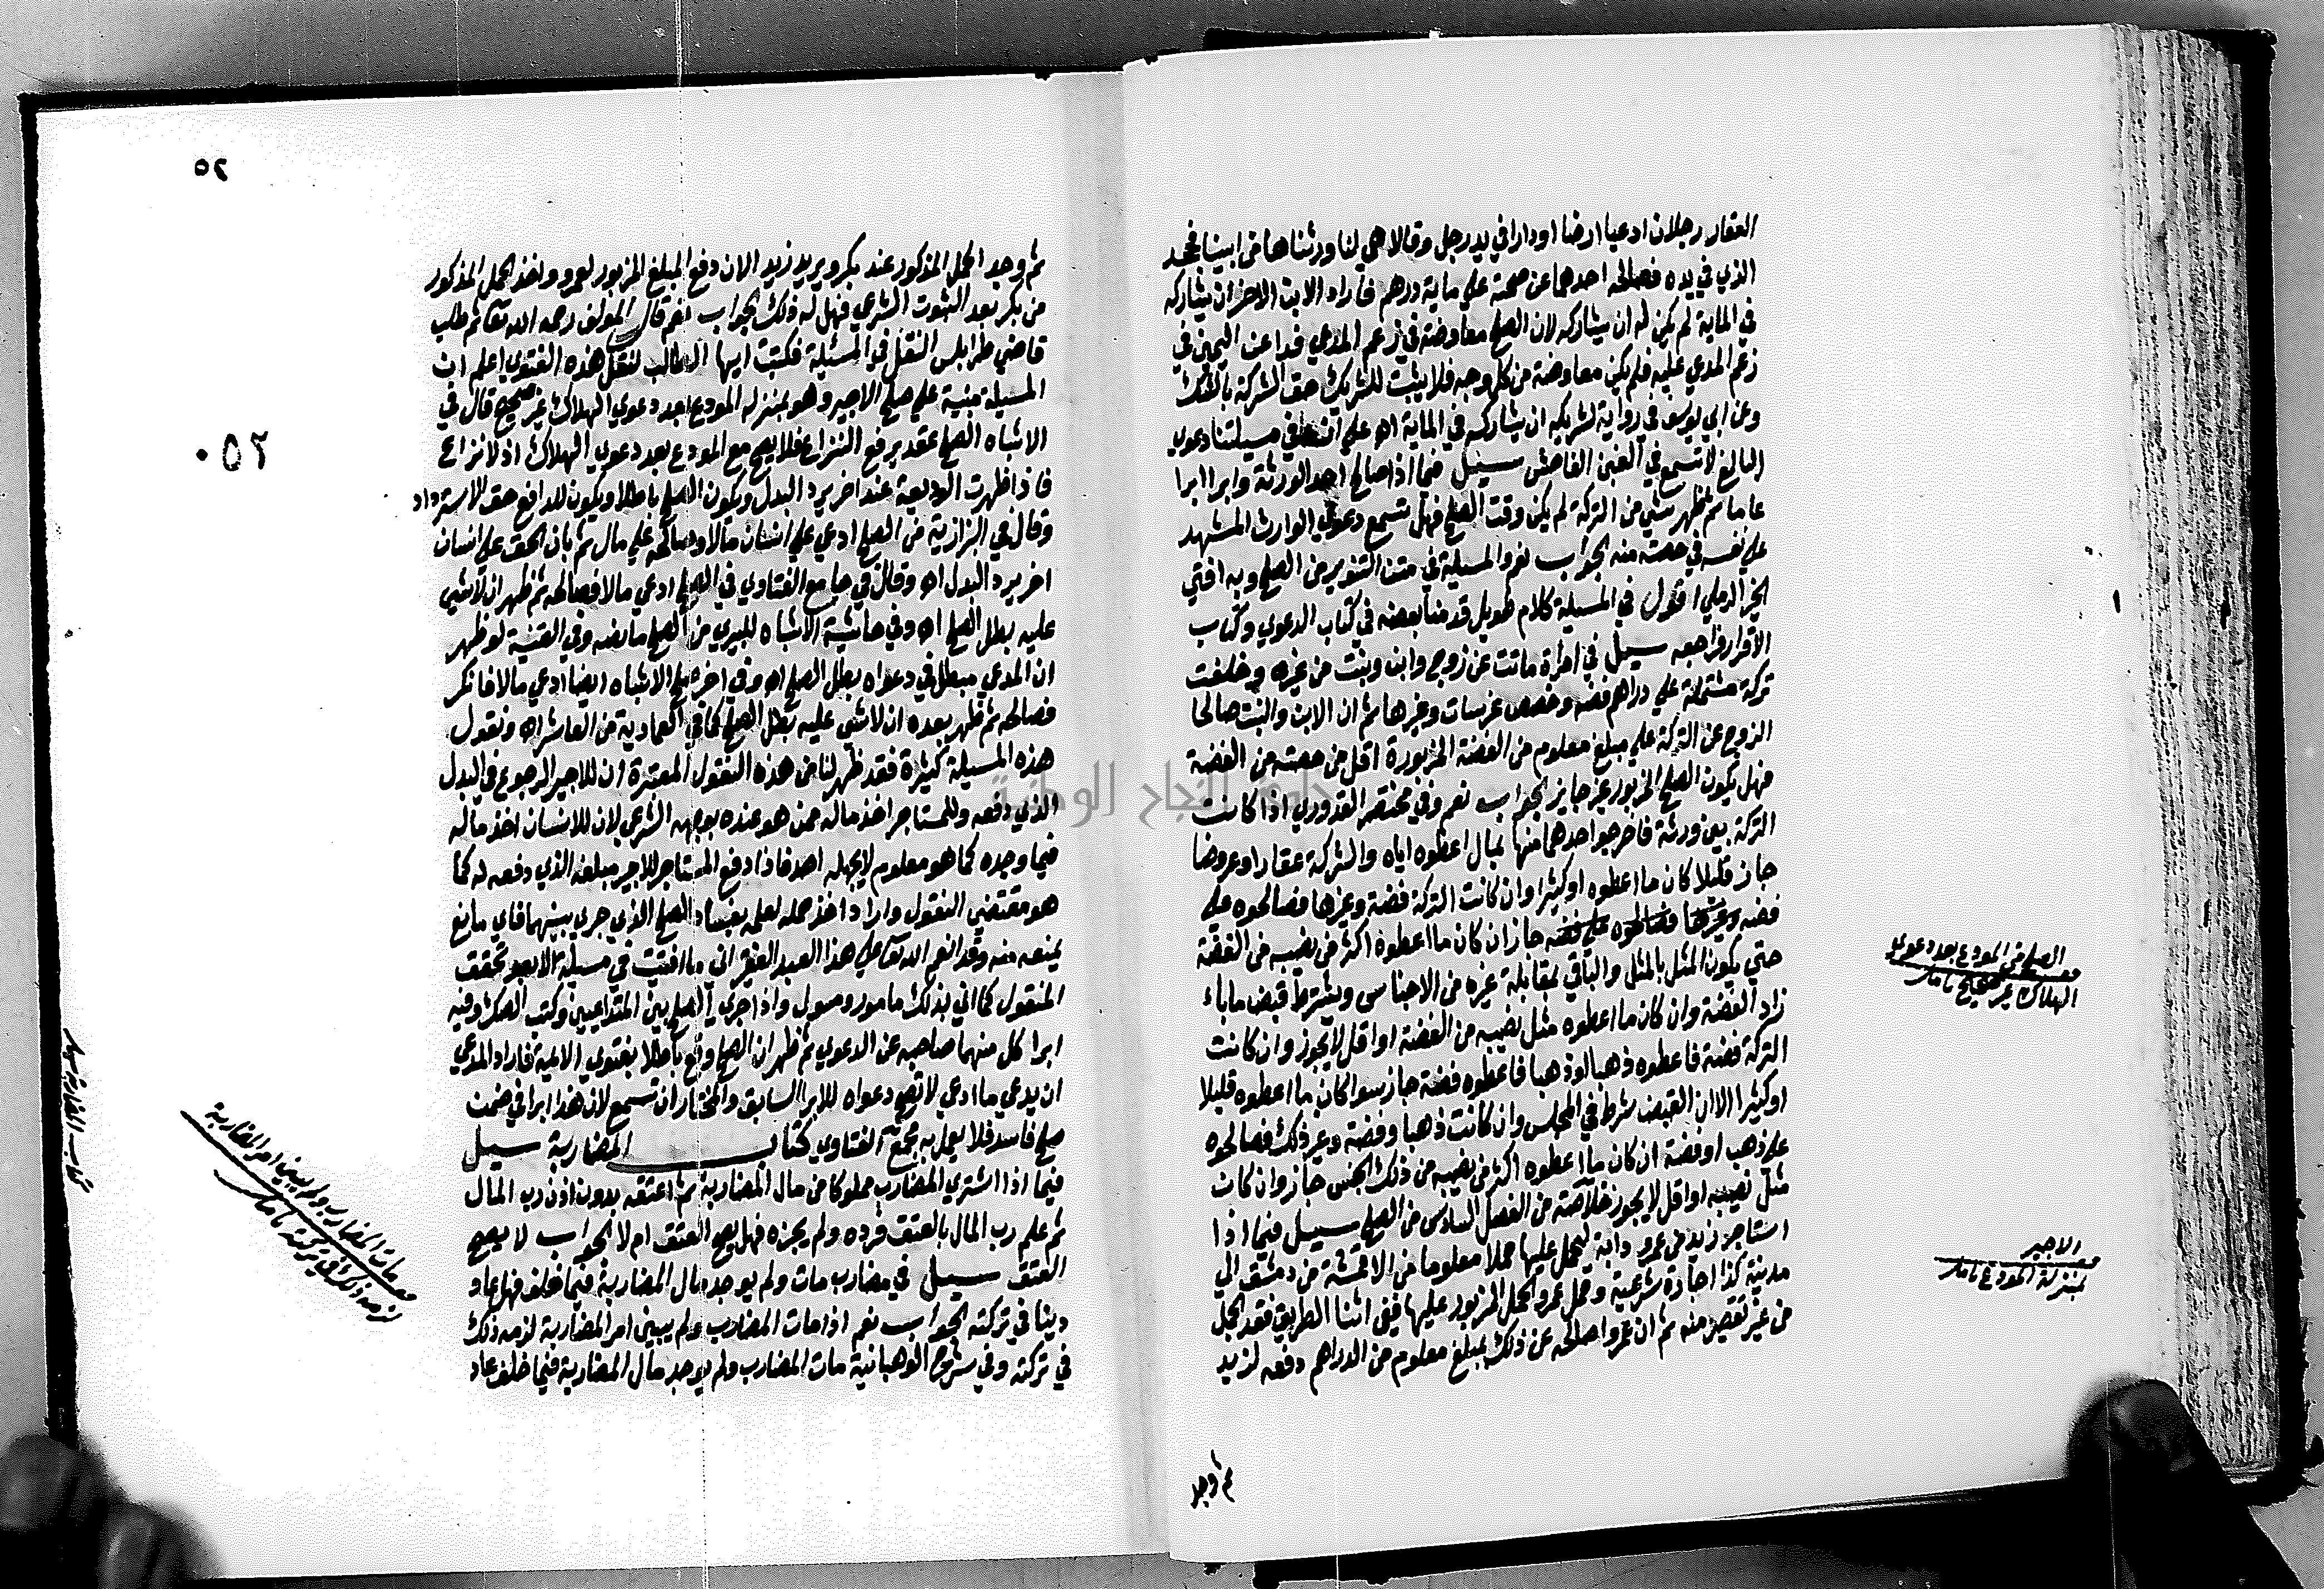 العقار رجلان ادعيا ارضا او دارا في يد رجل وقالا هي لنا ورثناها من ابينا فجحد
الذي في يده فصالحه احدهما عن حصته علي ماية درهم فاراد الابن الاخر ان يشاركه
في الماية لم يكن له ان يشاركه لان الصلح معاوضة في زعم المدعي فدا عن اليمين في
زعم المدعي عليه فلم يكن معاوضة من كل وجه فلا يثبت للشريك حق الشركة بالشك
وعن ابي يوسف في رواية لشريكه ان يشاركه في الماية اه علي انه في مسيلتنا دعوي
البالغ لا تسمع في الغبن الفاحش سيل فيما اذا صالح احد الورثة وابرا ابرا
عاما ثم ظهر شي من التركة لم يكن وقت الصلح فهل تسمع دعوي الوارث المشهد
علي نفسه في حصته منه الجواب نعم والمسيلة في متن التنوير من الصلح وبه افتي
الخير الرملي اقول في المسيلة كلام طويل قدمنا بعضه في كتاب الدعوي وكتاب
الاقرار فراجعه سيل في امراة ماتت عن زوج وابن وبنت من غيره وخلفت
تركة مشتملة علي دراهم فضة وحصص غرسات وغيرها ثم ان الابن والبنت صالحا
الزوج عن التركة علي مبلغ معلوم من الفضة المزبورة اقل من حصته من الفضة
فهل يكون الصلح المزبور غير جايز الجواب نعم وفي مختصر القدوري اذا كانت
التركة بين ورثة فاخرجوا احدهما منها بمال اعطوه اياه والتركة عقارا وعروضا
جاز قليلا كان ما اعطوه او كثيرا وان كانت التركة فضة وغيرها فصالحوه علي
فضة وغيرها فصالحوه علي فضة جاز ان كان ما اعطوه اكثر من نصيبه من الفضة
حتي يكون المثل بالمثل والباقي بمقابلة غيره من الاجناس ويشترط قبض ما باء
زاء الفضة وان كان ما اعطوه مثل نصيبه من الفضة او اقل لا يجوز وان كانت
التركة فضة فاعطوه ذهبا او ذهبا فاعطوه فضة جاز سوا كان ما اعطوه قليلا
او كثيرا الا ان القبض شرط في المجلس وان كانت ذهبا وفضة وغير ذلك فصالحوه
علي ذهب او فضة ان كان ما اعطوه اكثر من نصيبه من ذلك الجنس جاز وان كان
مثل نصيبه او اقل لا يجوز خلاصة من الفصل السادس من الصلح سيل فيما اذا
استاجر زيد من عمرو دابة ليحمل عليها حملا معلوما من الاقمشة من دمشق الي
مدينة كذا اجارة شرعية وحمل عمرو الحمل المزبور عليها ففي اثنا الطريق فقد الحمل
من غير تقصير منه ثم ان عمروا صالحه عن ذلك بمبلغ معلوم من الدراهم دفعه لزيد
ثم وجد
الصلح من المودع بعد دعوي
الهلاك غير صحيح
الاجير
بمنزلة المودع
٥٢
٠٥٢
ثم وجد الحمل المذكور عند بكر ويريد زيد الان دفع المبلغ المزبور لعمرو واخذ الحمل المذكور
من بكر بعد الثبوت الشرعي فهل له ذلك الجواب نعم قال المولف رحمه الله تعا ثم طلب
قاضي طرابلس النقل في المسئلة فكتبت ايها الطالب لنقل هذه الفتوي اعلم ان
المسيلة مبنية علي صلح الاجير وهو بمنزلة المودع بعد دعوي الهلاك غير صحيح قال في
الاشباه الصلح عقد يرفع النزاع فلا يصح مع المودع بعد دعوي الهلاك اذ لا نزاع
فاذا ظهرت الوديعة عند اخر يرد البدل ويكون الصلح باطلا ويكون للدافع حق الاسترداد
وقال في البزازية من الصلح ادعي علي انسان مالا وصالحه علي مال ثم بان الحق علي انسان
اخر يرد البدل اه وقال في جامع الفتاوي في الصلح ادعي مالا فصالحه ثم ظهر ان لا شي
عليه بطل الصلح اه وفي حاشية الاشباه للبيري من الصلح ما نصه وفي القنية لو ظهر
ان المدعي مبطل في دعواه بطل الصلح اه وفي اخر صلح الاشباه ايضا ادعي مالا فانكر
فصالحه ثم ظهر بعده ان لا شي عليه بطل الصلح كما في العمادية من العاشر اه ونقول
هذه المسيلة كثيرة فقد ظهر لنا من هذه النقول المعتبرة ان للاجير الرجوع في البدل
الذي دفعه وللمستاجر اخذ ماله ممن هو عنده بوجهه الشرعي لان للانسان اخذ ماله
فيما وجده كما هو معلوم لا يجهله احد فاذا دفع المستاجر للاجير مبلغه الذي دفعه له كما
هو مقتضي النقول واراد اخذ حمله لعلمه بفساد الصلح الذي جري بينهما فاي مانع
يمنعه منه وقد انعم الله تعا علي هذا العبد الفقير اني ما افتيت في مسيلة الا بعد تحقق
المنقول كما اني بذلك مامور ومسول واذا جري الصلح بين المتداعيين وكتب الصك وفيه
ابرا كل منهما صاحبه عن الدعوي ثم ظهر ان الصلح وقع باطلا بفتوي الائمة فاراد المدعي
ان يدعي ما ادعي لا تصح دعواه للابرا السابق والمختار ان تسمع لان هذا ابرا في ضمن
صلح فاسد فلا يعمل به مجمع الفتاوي كتاب المضاربة سيل
فيما اذا اشتري المضارب مملوكا من مال المضاربة ثم اعتقه بدون اذن رب المال
ثم علم رب المال بالعتق فرده ولم يجزه فهل يصح العتق ام لا الجواب لا يصح
العتق سيل في مضارب مات ولم يوجد مال المضاربة فيما خلف فهل عاد
دينا في تركته الجواب نعم اذا مات المضارب ولم يبين امر المضاربة لزمه ذلك
في تركته وفي شرح الوهبانية مات المضارب ولم يوجد مال المضاربة فيما خلف عاد
كتاب المضاربة
مات المضارب ولم يبين امر المضاربة
لزمه ذلك في تركته
جامعة النجاح الوطنية